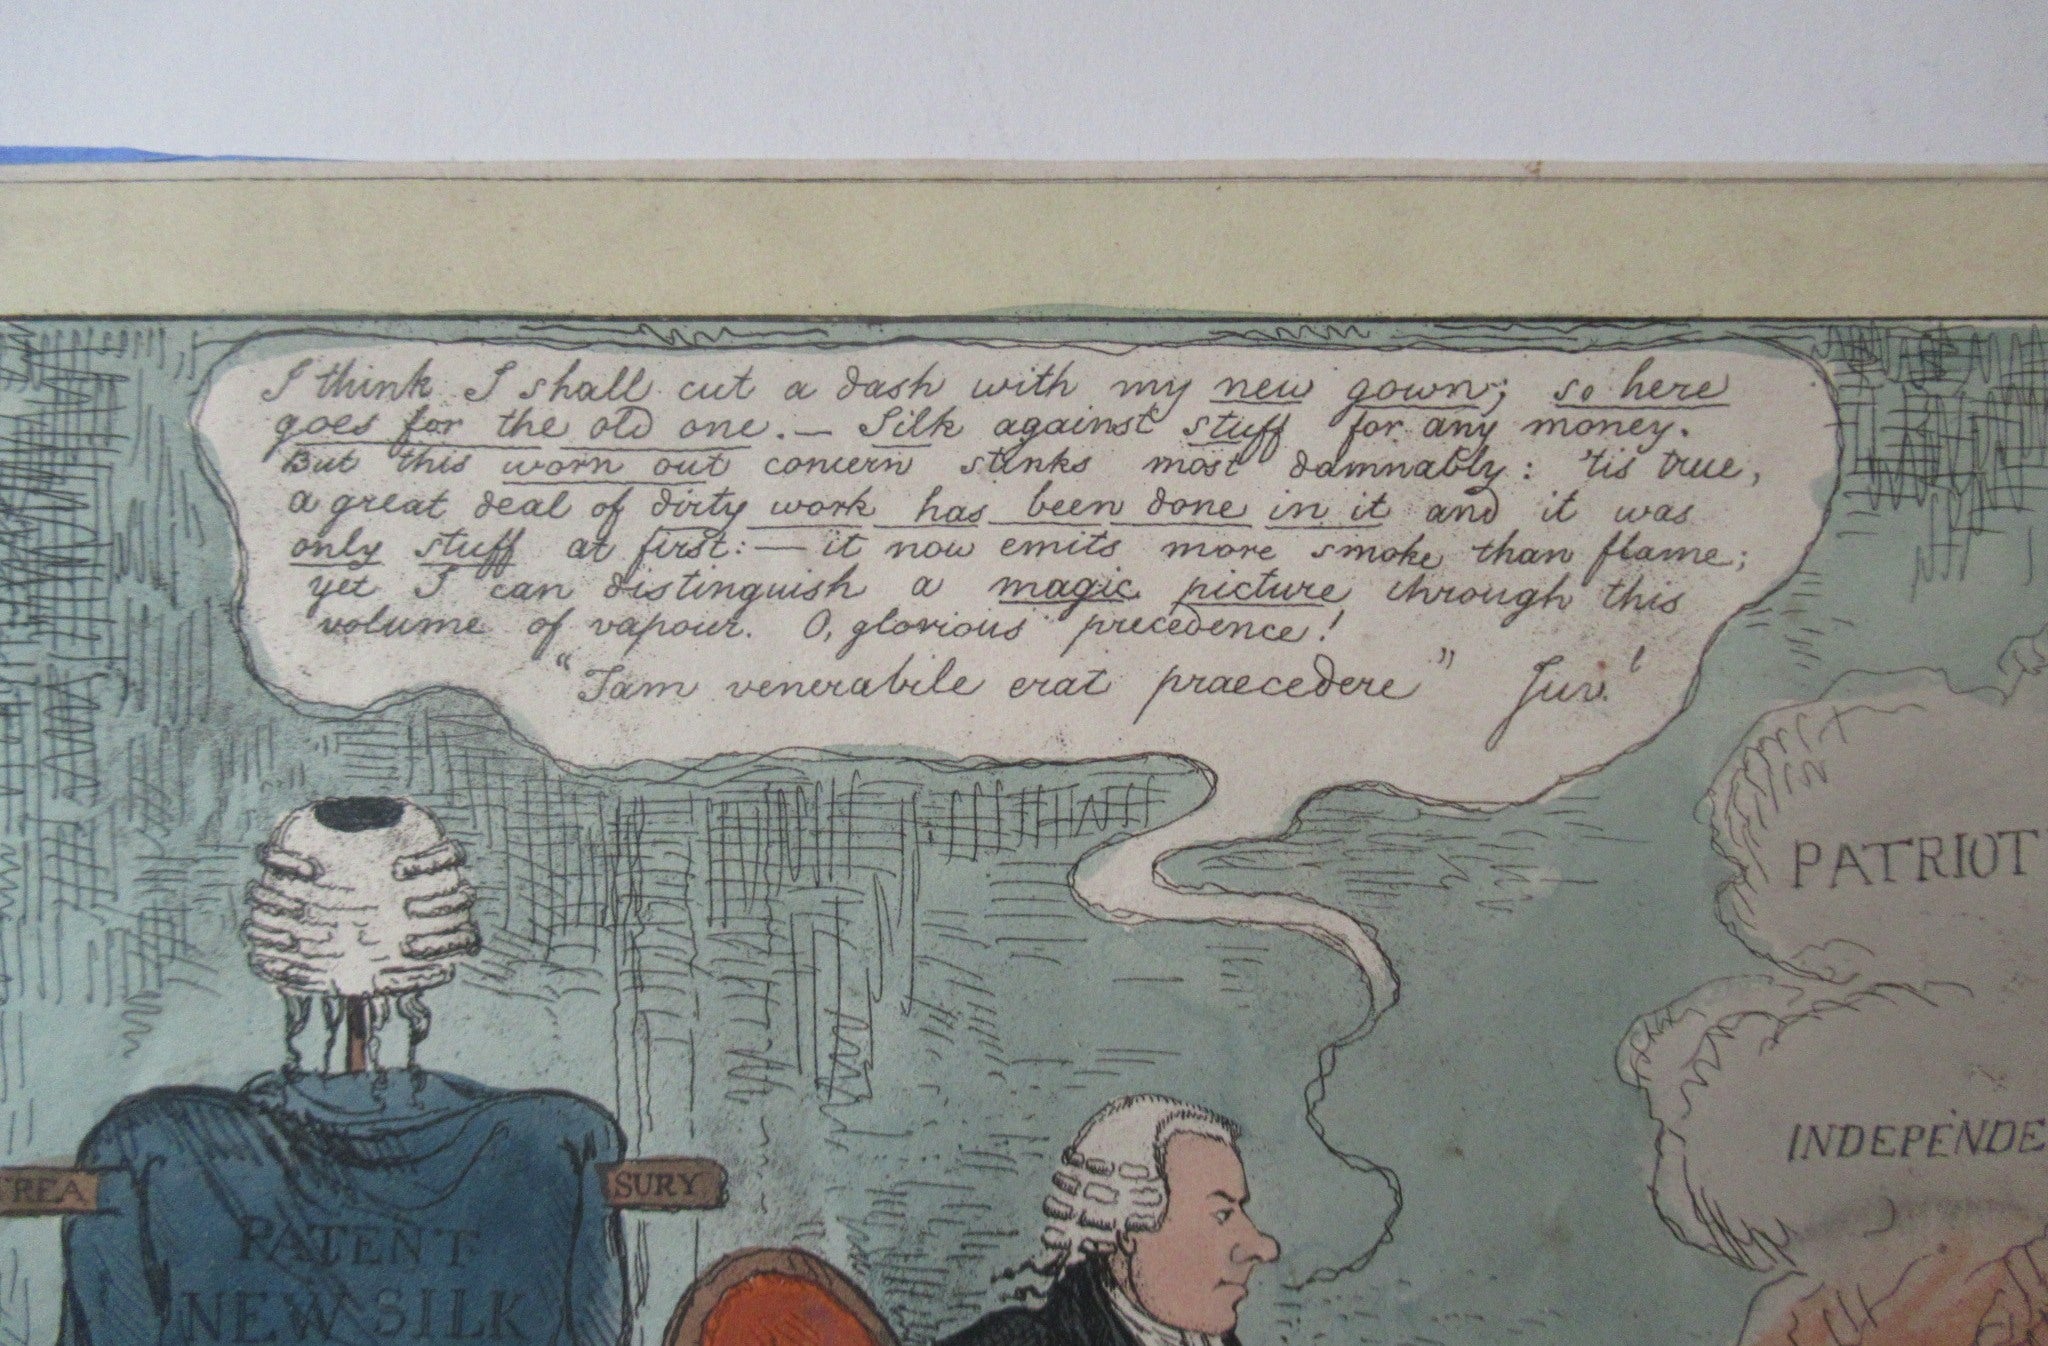 I think I shall cut a dash with my new gown; so here
goes for the old one. — Silk against stuff for any money.
But this worn out concern stinks most damnably: 'tis true,
a great deal of dirty work has been done in it and it was
only stuff at first: — it now emits more smoke than flame;
yet I can distinguish a magic picture through this
volume of vapour. O, glorious precedence!
"Jam venerabile erat praecedere" Juv.!
PATRIOT
INDEPENDE
TREA SURY
PATENT
NEW SILK